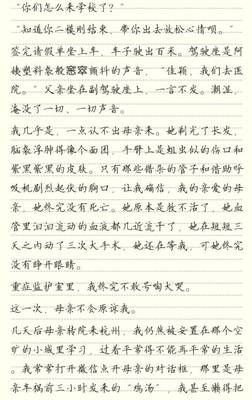 “你们怎么来学校了？”
“知道你二模刚结束，带你出去放松心情呗。”
签完请假单坐上车，车子驶出百米。驾驶座是阿
姨塑料裂般窸窣颤抖的声音，“佳颖，我们去医
院。”父亲坐在副驾驶座上，一言不发。潮湿，
淹没了一切、一切声音。
我几乎是，一点认不出母亲来。她剃光了长发，
脑袋浮肿得像个面团，手臂上是粗虫似的伤口和
紫黑紫黑的皮肤。只有那些错杂的管子和借助呼
吸机剧烈起伏的胸口，让我确信，我的亲爱的母
亲，她终究没有死亡。她原本是救不活了，她血
管里汩汩流动的血液都几近流干了，她在短短三
天之内动了三次大手术，她还在等我，可她终究
没有睁开眼睛。
重症监护室里，我终究不敢号啕大哭。
这一次，母亲不会原谅我。
几天后母亲转院来杭州，我仍然被安置在那个空
旷的小城里学习，过着平常得不能再平常的生活
。我常常打开微信点开母亲的对话框，那里是母
亲车祸前三小时发来的“鸡汤”，我甚至懒得把